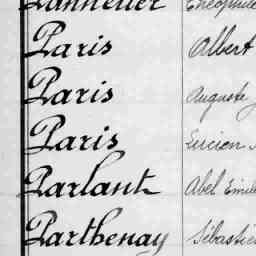 Pannetier Théophile
Paris Albert
Paris Auguste
Paris Lucien
Parlant Abel Emile
Parthenay Sébastien